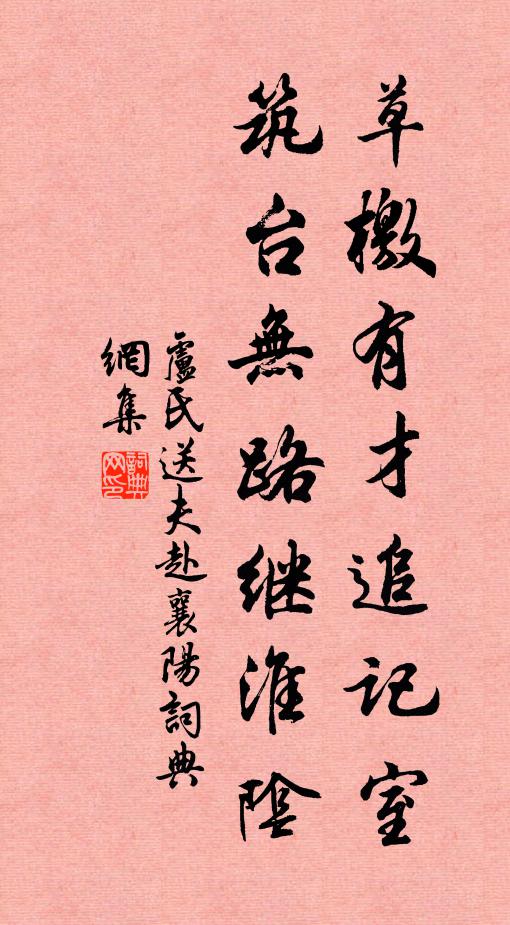 草檄有才追记室
筑台無路继淮陰
盧氏送夫赴襄陽詞典
網集
詞典网印